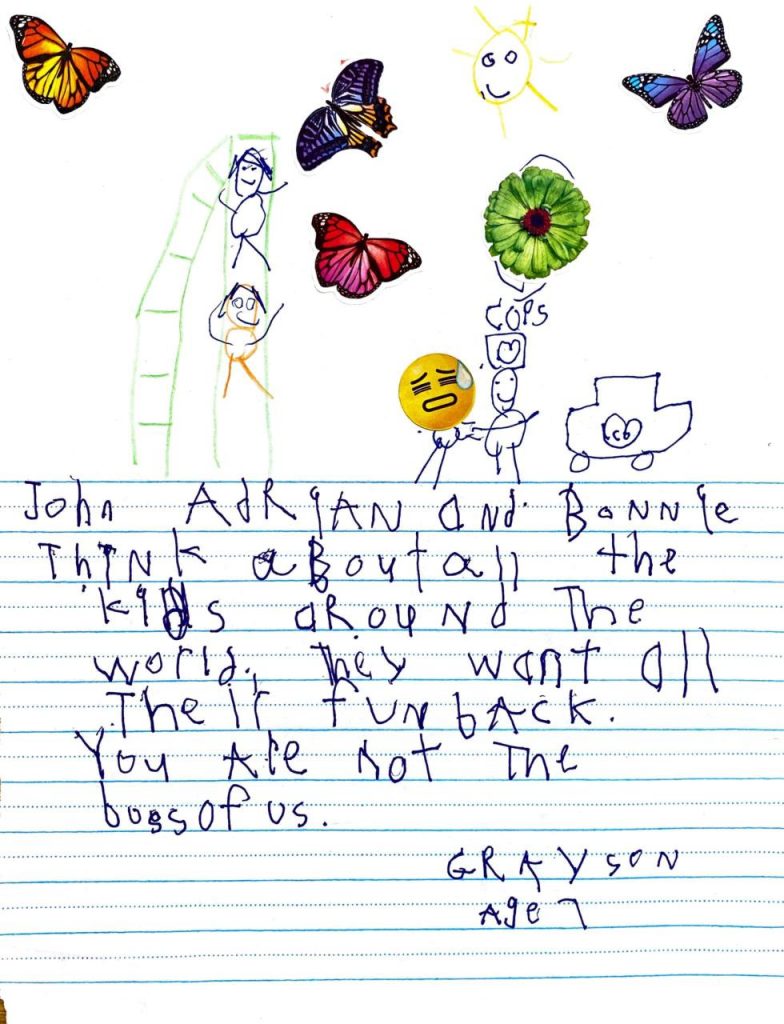 COPS
JOhn AdRIAN and BONNIE
ThINK aBout all the
kids aROUNd The
world, they want all
The Ir fun bACK.
You Are not The
boss of us.
GRAYSON
Age 7